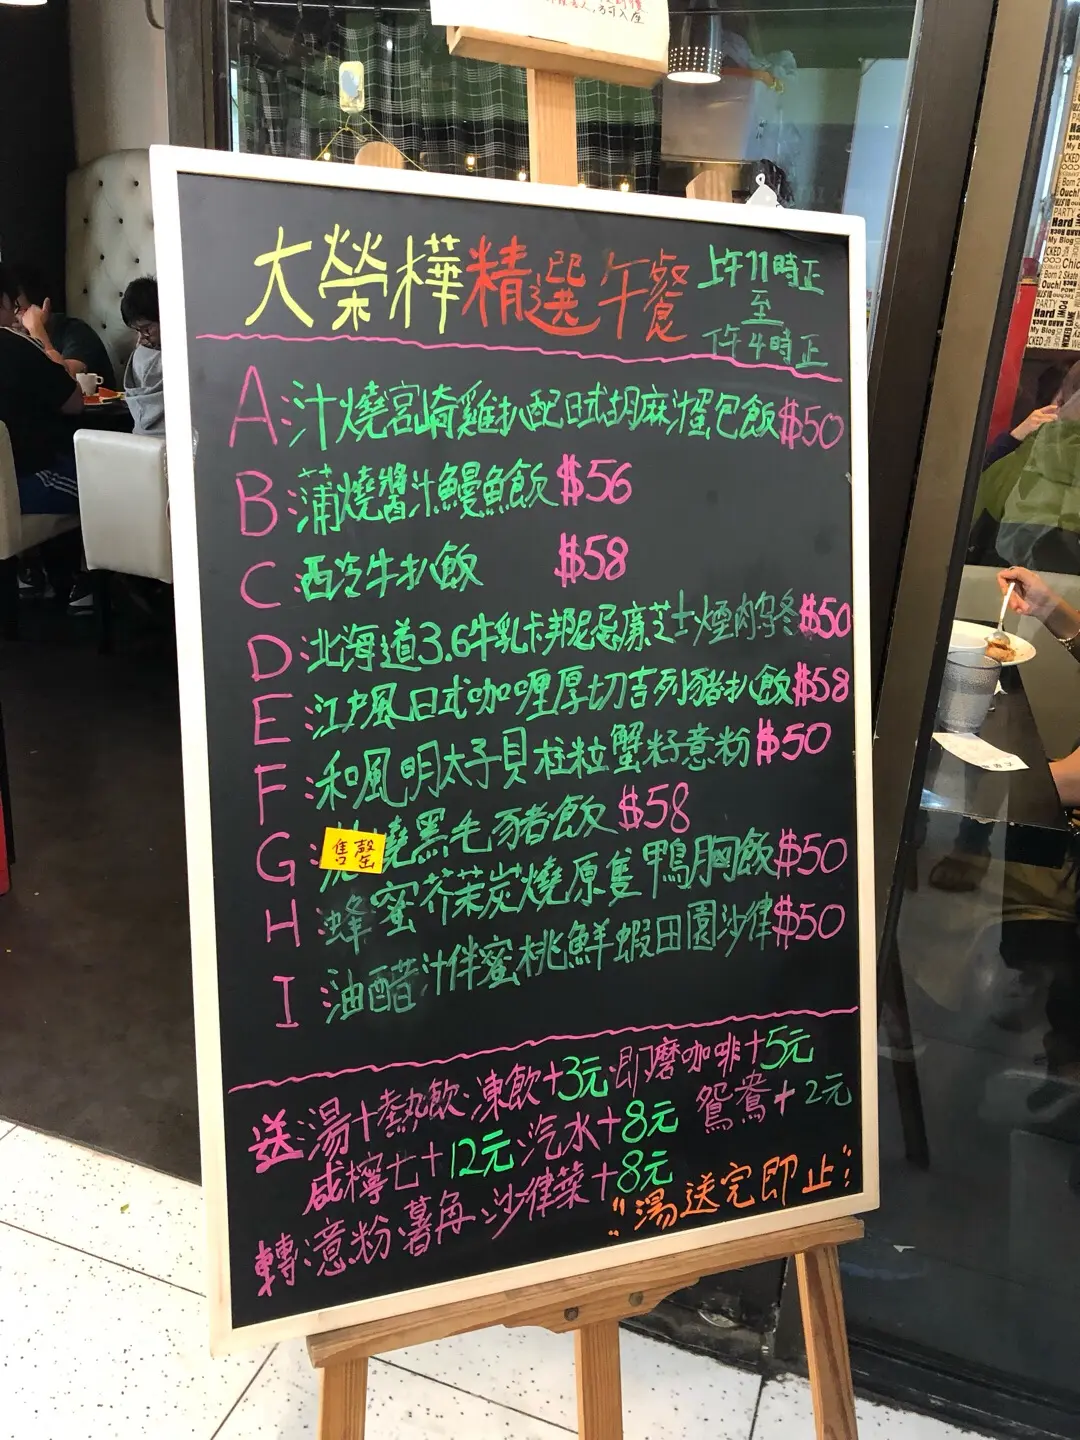 人，方可入座
大榮樺精選午餐
上午11時正
至
下午4時正
A:汁燒宮崎雞扒配日式胡麻汁蛋包飯$50
B:蒲燒醬汁鰻魚飯$56
C:西冷牛扒飯 $58
D:北海道3.6牛乳卡邦尼忌廉芝士煙肉烏冬$50
E:江戶風日式咖喱厚切吉列豬扒飯$58
F:和風明太子貝柱粒蟹籽意粉$50
G:燒黑毛豬飯$58
售罄
H:蜂蜜芥茉炭燒原隻鴨胸飯$50
I:油醋汁伴蜜桃鮮蝦田園沙律$50
送:湯+熱飲·凍飲+3元·即磨咖啡+5元
咸檸七+12元·汽水+8元 鴛鴦+2元
轉:意粉·薯角·沙律菜+8元
"湯送完即止"
PARTY
My Blog
Hard
Ouch!